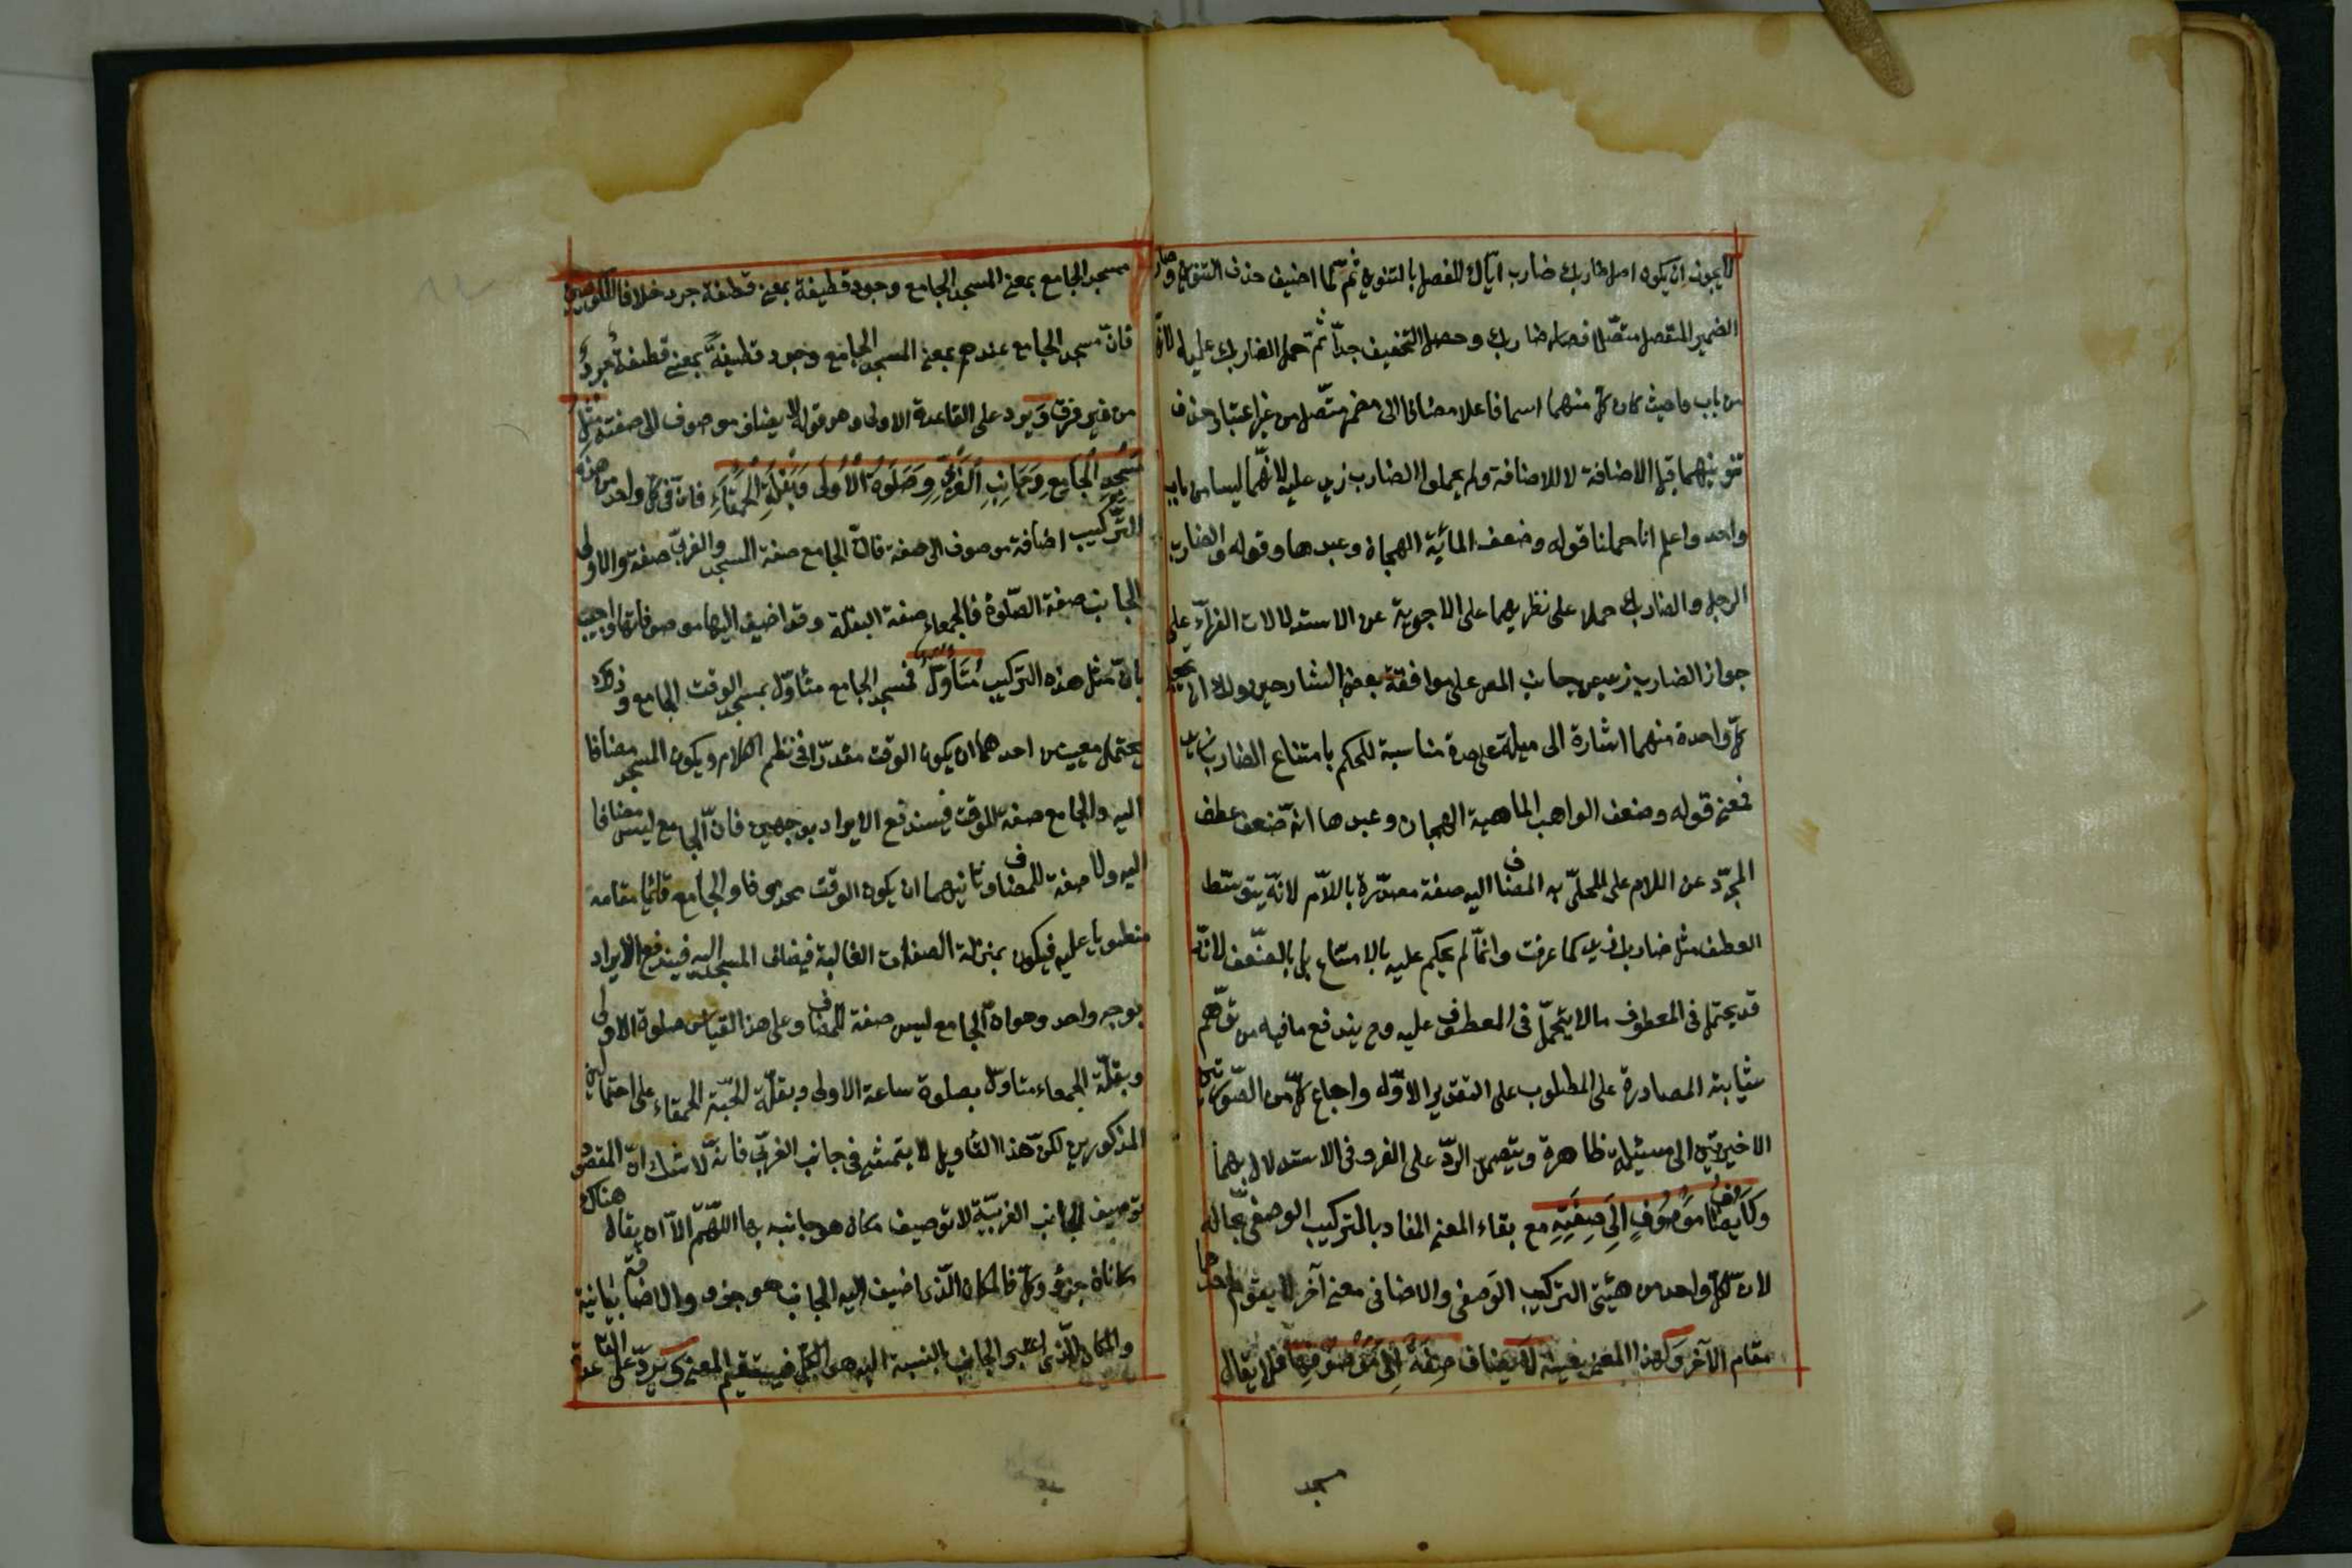 لا يجوز ان يكون اصل ضاربك ضارب اياك المفصل بالتنوين ثم لما اضيف حذف التنوين وصار
الضمير المنفصل متصلا فصار ضاربك وحصل التخفيف جدا ثم حمل الضاربك عليه لانهما
من باب واحد حيث كان كل منهما اسما فاعلا مضافا الى مضمر متصل من غير اعتبار حذف
تنوينهما قبل الاضافة لا للاضافة ولم يحملوا الضارب زيد عليه لانهما ليسا من باب
واحد واعلم انا حملنا قوله وضعف المائة الهجان وعبدها وقوله والضارب
الرجل والضاربك حملا على نظريهما على الاجوبة عن الاستدلالات الفراء على
جواز الضارب زيد من جانب المص على موافقة بعض الشارحين ولك ان تجعل
كل واحدة منهما اشارة الى مسئلة على حدة مناسبة للحكم بامتناع الضارب زيد
فمعنى قوله وضعف الواهب الماهية الهجان وعبدها انه ضعف عطف
المجرد عن اللام على المحلى به المضاف اليه صفة مصدرة باللام لانه يتوسط
العطف مثل ضارب زيد كما عرفت وانما لم يحكم عليه بالامتناع بل بالضعف لانه
قد يحتمل فى المعطوف ما لا يتحمل فى المعطوف عليه وح يندفع ما فيه من توهم
شايبة المصادرة على المطلوب على التقدير الاول وارجاع كل من الصورتين
الاخيرتين الى مسئلة ظاهرة ويتصمن الرد على الفراء فى الاستدلال بهما
ولا يضاف موصوف الى صفته مع بقاء المعنى المفاد بالتركيب الوصفى بحاله
لان لكل واحد من هيئتى التركيب الوصفى والاضافى معنى آخر لا يقوم احدهما
مقام الآخر ولهذا المعنى بعينه لا يضاف صفة الى موصوفها فلا يقال
مسجد
مسجد الجامع بمعنى المسجد الجامع وجرد قطيفة بمعنى قطيفة جرد خلافا للكوفيين
فان مسجد الجامع عندهم بمعنى المسجد الجامع وجرد قطيفة بمعنى قطيفة جرد
من غير فرق ويرد على القاعدة الاولى وهو قوله لا يضاف موصوف الى صفته مثل
مسجد الجامع وجانب الغربى وصلوة الاولى وبقلة الحمقاء فان فى كل واحد من هذه
التركيب اضافة موصوف الى صفة فان الجامع صفة المسجد والغربى صفة والاولى
الجانب صفة الصلوة فالحمقاء صفة البقلة وقد اضيف اليها موصوفاتها واجيب
بان مثل هذه التركيب متأول فمسجد الجامع متأول بمسجد الوقت الجامع وذلك
يحتمل معنيين احدهما ان يكون الوقت مقدرا فى نظم الكلام ويكون المسجد مضافا
اليه والجامع صفة للوقت فيندفع الايراد بوجهين فان الجامع ليس مضافا
اليه ولا صفة للمضاف وثانيهما ان يكون الوقت محذوفا والجامع قائما مقامه
منطويا عليه فيكون بمنزلة الصفات الغالبة فيضاف المسجد اليه فيندفع الايراد
بوجه واحد وهو ان الجامع ليس صفة للمضاف وعلى هذا القياس صلوة الاولى
وبقلة الحمقاء متأول بصلوة ساعة الاولى وبقلة الحبة الحمقاء على احتمالين
المذكورين لكن هذا التأويل لا يتمشى فى جانب الغربى فانه لا شك ان المقصود
توصيف الجانب الغربية لا توصيف مكان هو جانبه بها اللهم الا ان يقال هناك
مكانان جزء وكل فالمكان الذى اضيف اليه الجانب هو جزء والاضافة بيانية
والمكان الذى اعتبر الجانب بالنسبة اليه هو الكل فيستقيم المعنى ويرد على القاعدة